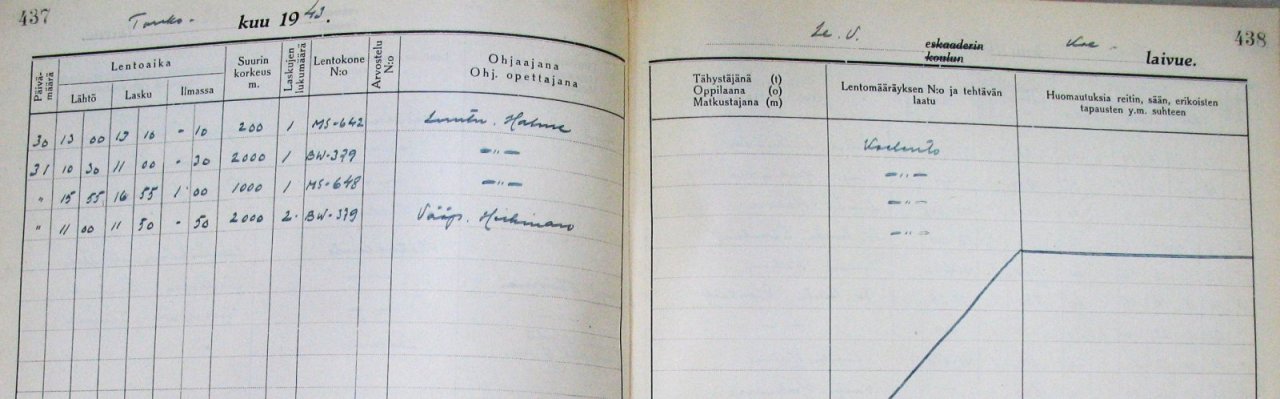 437
kuu 1943.
Päivämäärä Lentoaika Suurin korkeus m. Laskujen lukumäärä Lentokone N:o Arvostelu N:o Ohjaajana Ohj. opettajana
Lähtö Lasku Ilmassa
30 13 00 13 10 - 10 200 1 MS-642 Luutn. Halme
31 10 30 11 00 - 30 2000 1 BW-379 -"-
" 15 55 16 55 1 00 1000 1 MS-648 -"-
" 11 00 11 50 - 50 2000 2 BW-379 Vääp.
438
Le. V. eskaaderin koulun Koe- laivue.
Tähystäjänä (t)
Oppilaana (o)
Matkustajana (m)
Lentomääräyksen N:o ja tehtävän laatu
Huomautuksia reitin, sään, erikoisten tapausten y.m. suhteen
Koelento
-"-
-"-
-"-